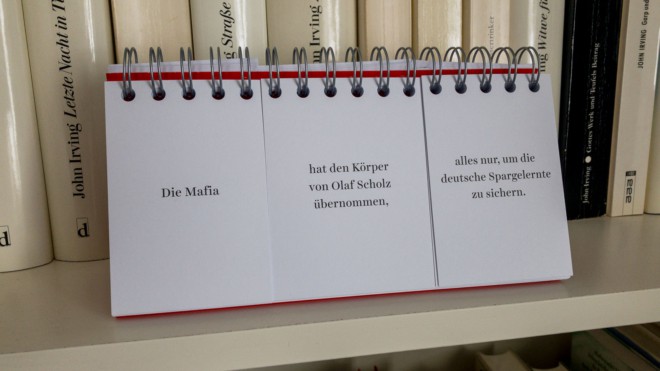 John Irving Letzte Nacht in T
Straße
John Irving
Witwe f
John Irving Gottes Werk und Teufels Beitrag
JOHN IRVING
d
d
Die Mafia
hat den Körper
von Olaf Scholz
übernommen,
alles nur, um die
deutsche Spargelernte
zu sichern.